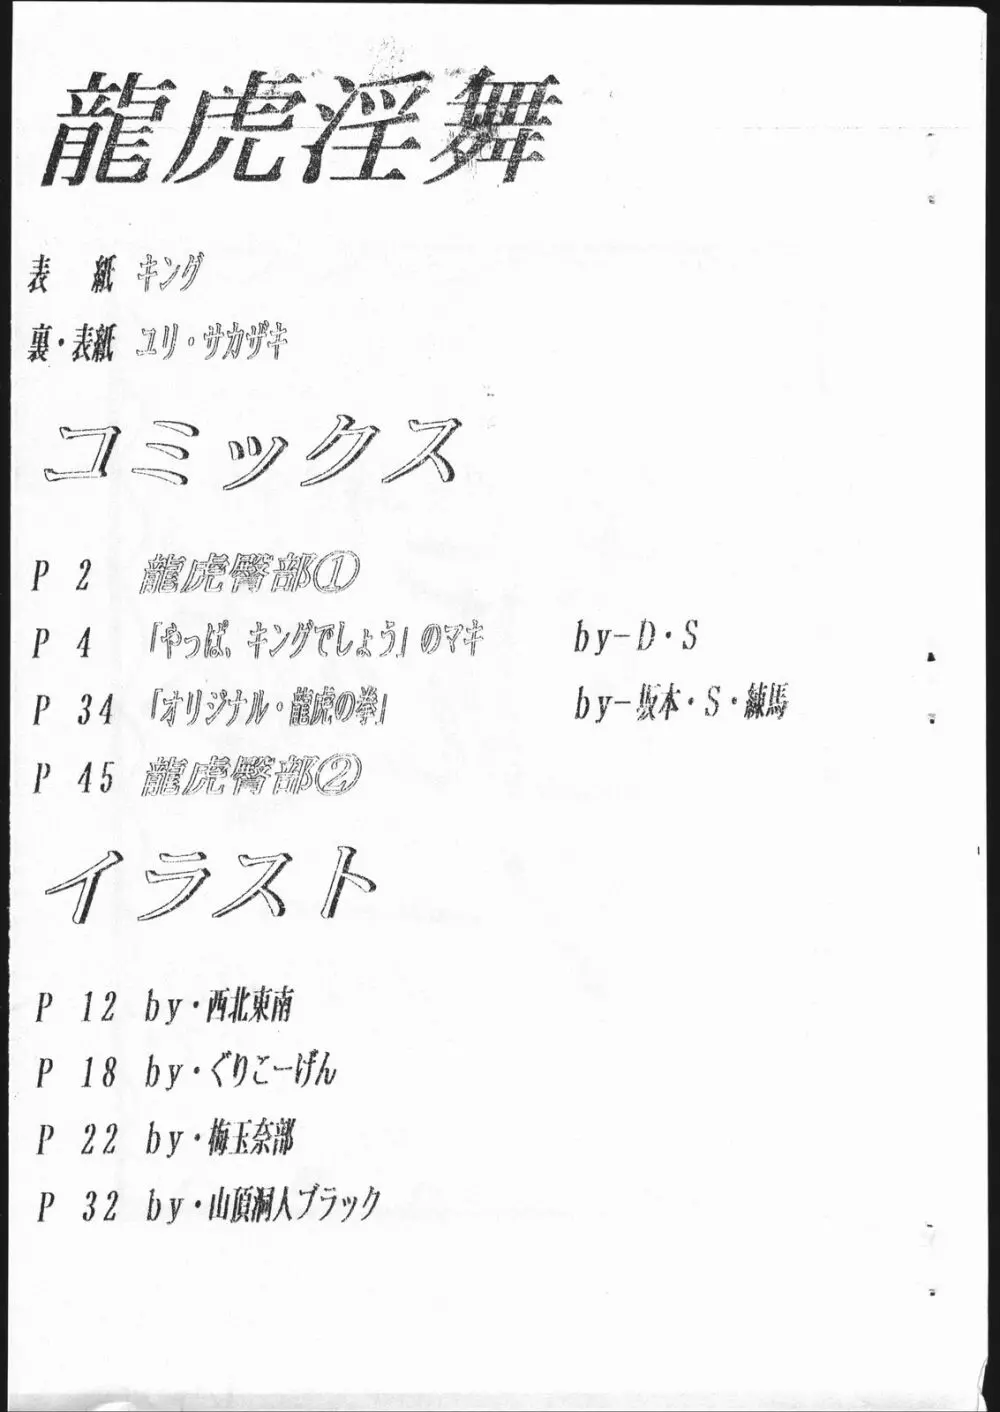 龍虎淫舞
表　紙 キング
裏・表紙 ユリ・サカザキ
コミックス
P 2 龍虎臀部①
P 4 「やっぱ,キングでしょう」のマキ by-D・S
P 34 「オリジナル・龍虎の拳」 by-坂本・S・練馬
P 45 龍虎臀部②
イラスト
P 12 by・西北東南
P 18 by・ぐりこーげん
P 22 by・梅玉奈部
P 32 by・山頂洞人ブラック